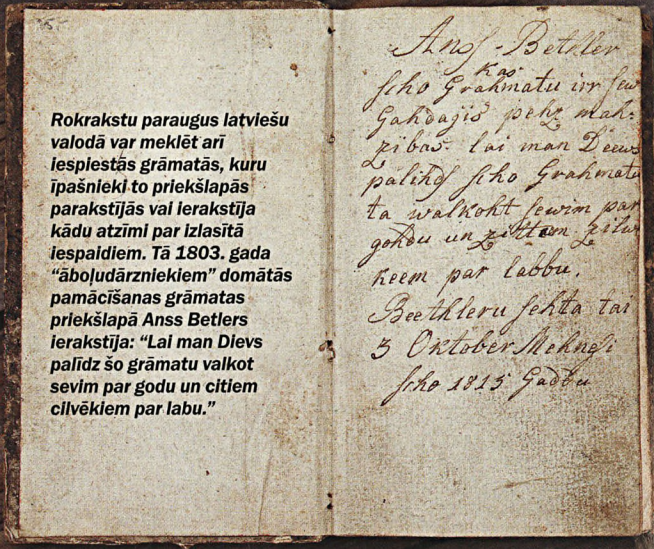 Rokrakstu paraugus latviešu
valodā var meklēt arī
iespiestās grāmatās, kuru
īpašnieki to priekšlapās
parakstījās vai ierakstīja
kādu atzīmi par izlasītā
iespaidiem. Tā 1803. gada
“āboļudārzniekiem” domātās
pamācīšanas grāmatas
priekšlapā Anss Betlers
ierakstīja: “Lai man Dievs
palīdz šo grāmatu valkot
sevim par godu un citiem
cilvēkiem par labu.”
Ansſ - Bethler
kas
ſcho Grahmatu irr ſew
Gahdajis pehz mah=
zibas. lai man Deews
palihdſ ſcho Grahmatu
ta walkoht ſewim par
gohdu un zittem zilw
keem par labbu.
Beethleru ſehta tai
3 Oktober Mehneſi
ſcho 1815 Gaddu